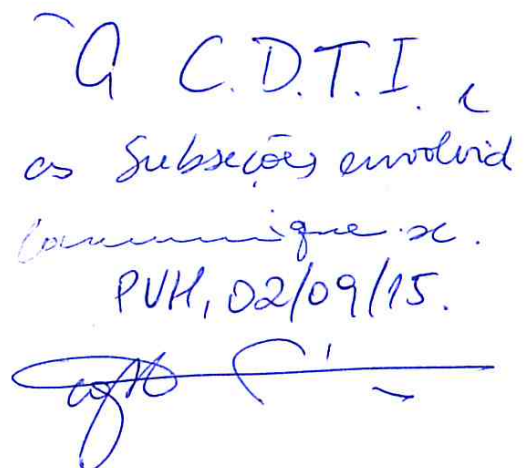 À C.D.T.I. e
as Subseções envolvid
Comunique-se.
PVH, 02/09/15.